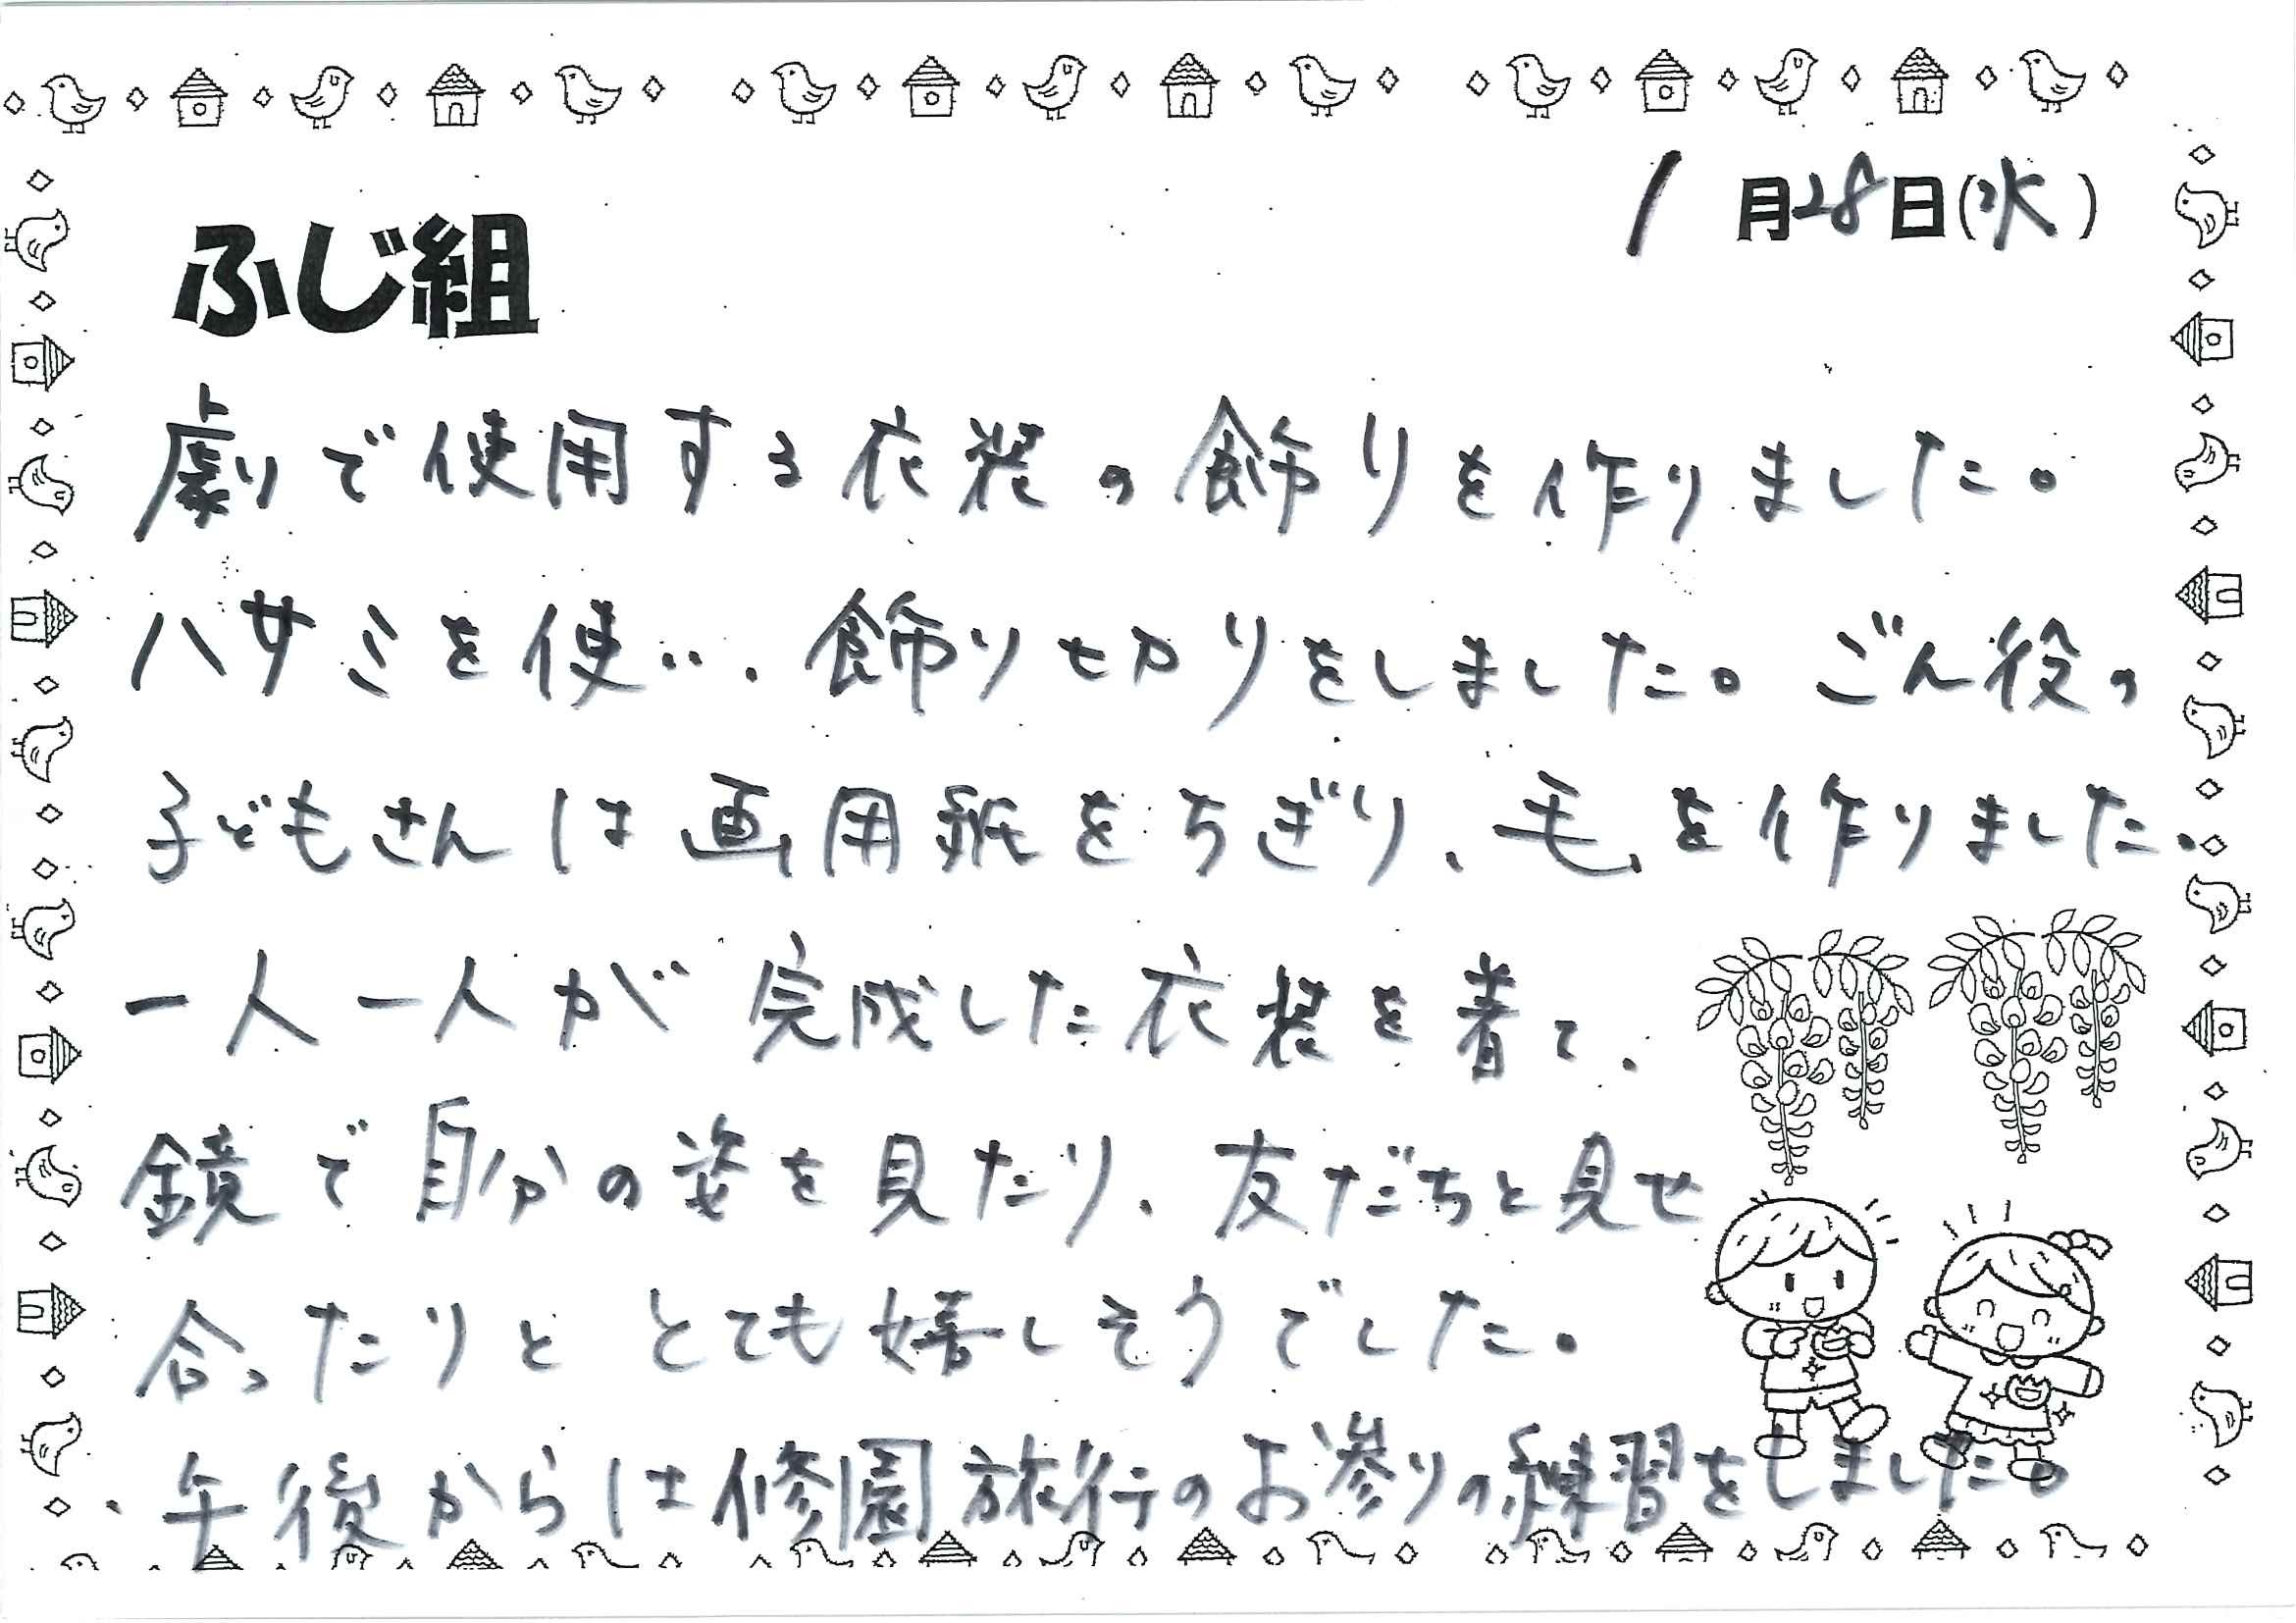 1月28日(水)
ふじ組
劇で使用する衣装の飾りを作りました。
ハサミを使い、飾り切りをしました。ごん役の
子どもさんは画用紙をちぎり、毛を作りました。
一人一人が完成した衣装を着て、
鏡で自分の姿を見たり、友だちと見せ
合ったりととても嬉しそうでした。
午後からは修園旅行のお参りの練習をしました。